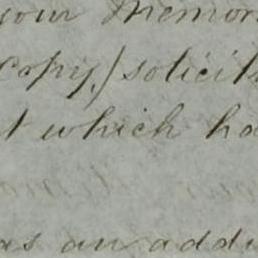 your Memor
Copy,) solicit
t which ha
as an addi